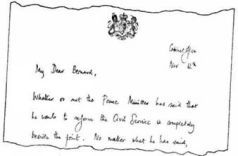 Cabinet Office
Nov 11th
My Dear Bernard,
Whether or not the Prime Minister has said that
he wants to reform the Civil Service is completely
beside the point. No matter what he has said,